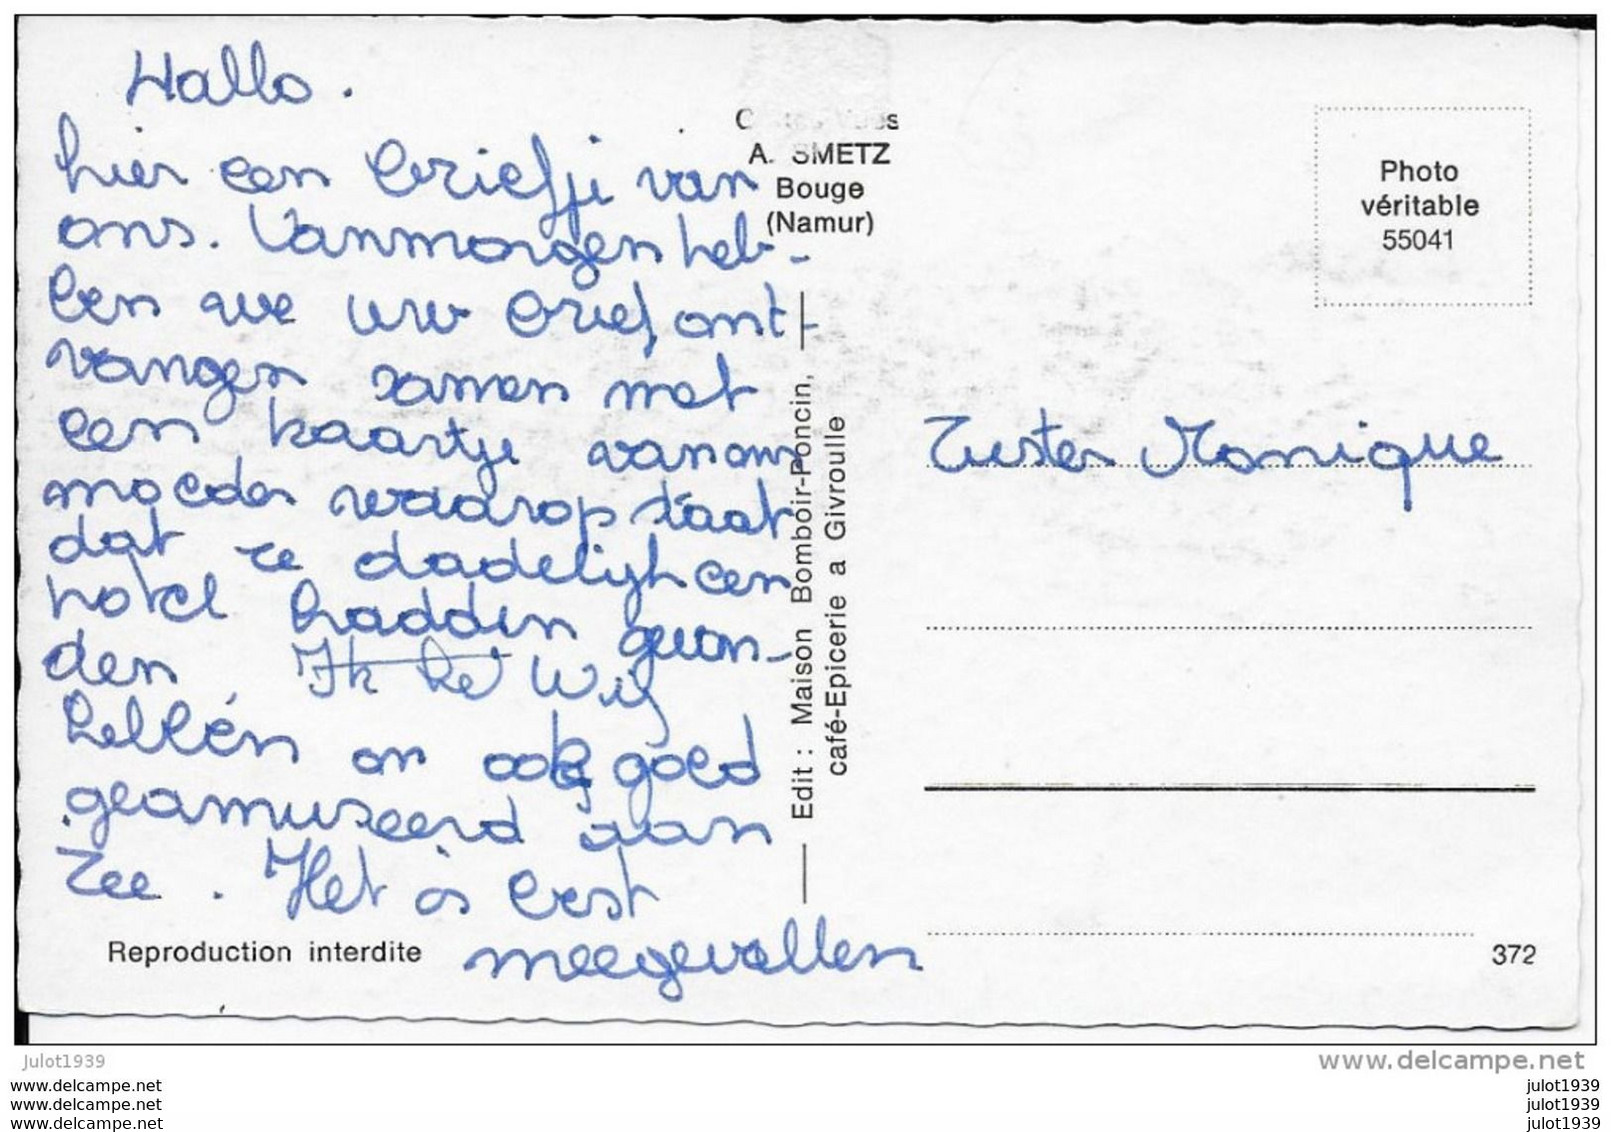 Hallo.
hier een briefji van
ons. Vanmorgen heb-
ben we uw brief ont-
vangen samen met
een kaartje van ons
moeder waarop staat
dat ze dadelijk een
hotel hadden gevon-
den Ik he Wij
hebbén ook goed
geamuseerd aan
Zee. Het is best
meegevallen
Reproduction interdite
A. SMETZ
Bouge
(Namur)
Edit : Maison Bomboir-Poncin,
café-Epicerie a Givroulle
Photo
véritable
55041
Zuster Monique
372
julot1939
www.delcampe.net
www.delcampe.net
www.delcampe.net
www.delcampe.net
julot1939
julot1939
julot1939